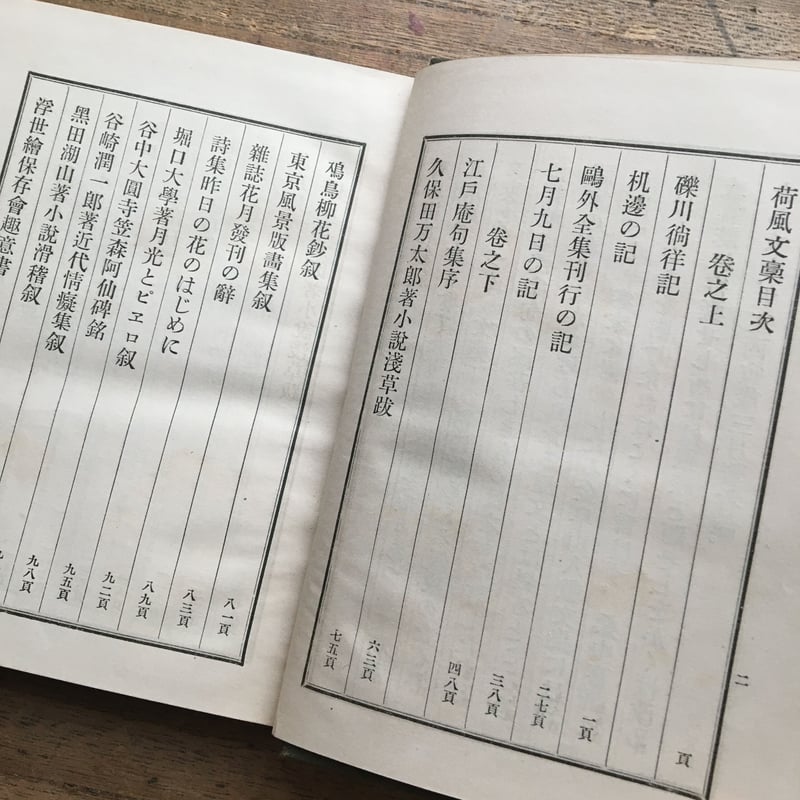 荷風文稾目次
卷之上 頁
礫川徜徉記 一頁
机邊の記 二七頁
鷗外全集刊行の記 三八頁
七月九日の記 四八頁
卷之下
江戸庵句集序 六三頁
久保田万太郎著小説淺草跋 七五頁
二
鳥柳花鈔叙 八一頁
東京風景版畫集叙 八三頁
雜誌花月發刊の辭 八九頁
詩集昨日の花のはじめに 九二頁
堀口大學著月光とピヱロ叙 九五頁
谷中大圓寺笠森阿仙碑銘 九八頁
谷崎潤一郎著近代情癡集叙
黑田湖山著小説滑稽叙
浮世繪保存會趣意書